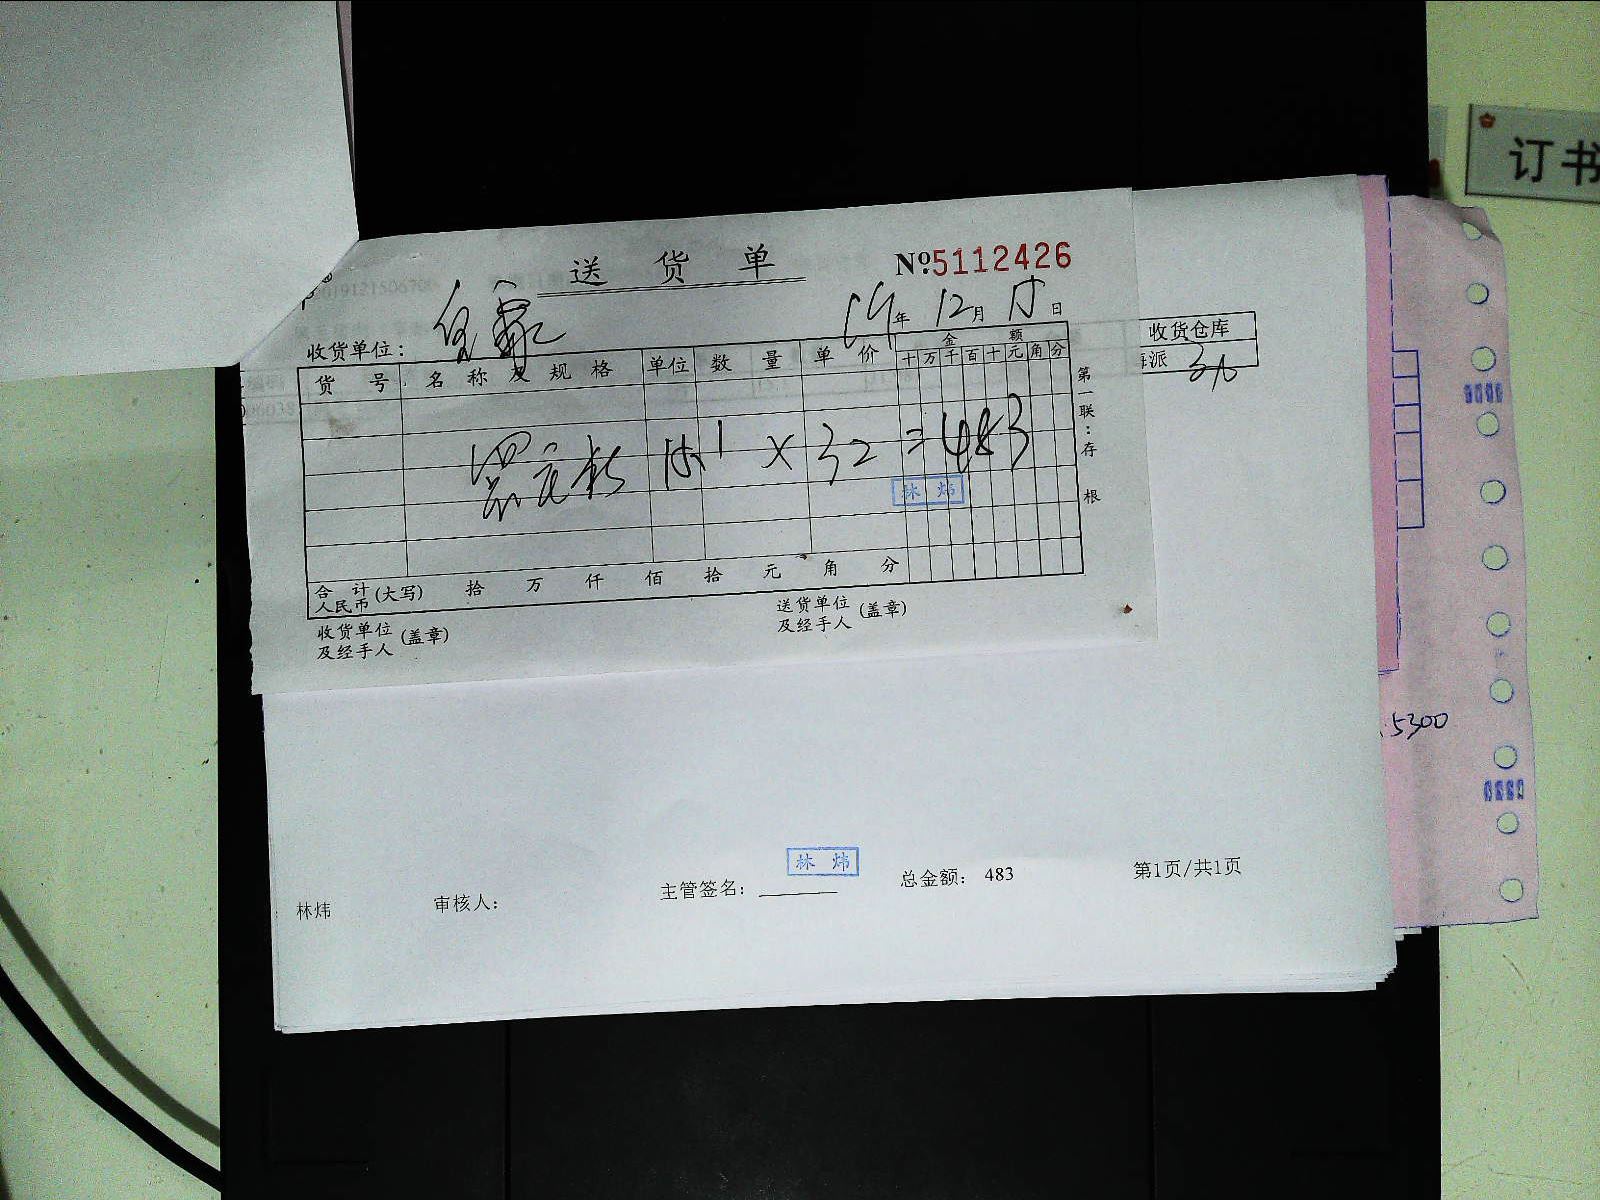 订书
送货单
№5112426
19年12月15日
收货单位：
收货仓库
海派
货号 名称及规格 单位 数量 单价 金额
十万千百十元角分
15.1 × 32 = 483
林炜
第一联：存根
合计人民币(大写) 拾 万 仟 佰 拾 元 角 分
收货单位及经手人(盖章)
送货单位及经手人(盖章)
5300
林炜
林炜
审核人：
主管签名：
总金额： 483
第1页/共1页